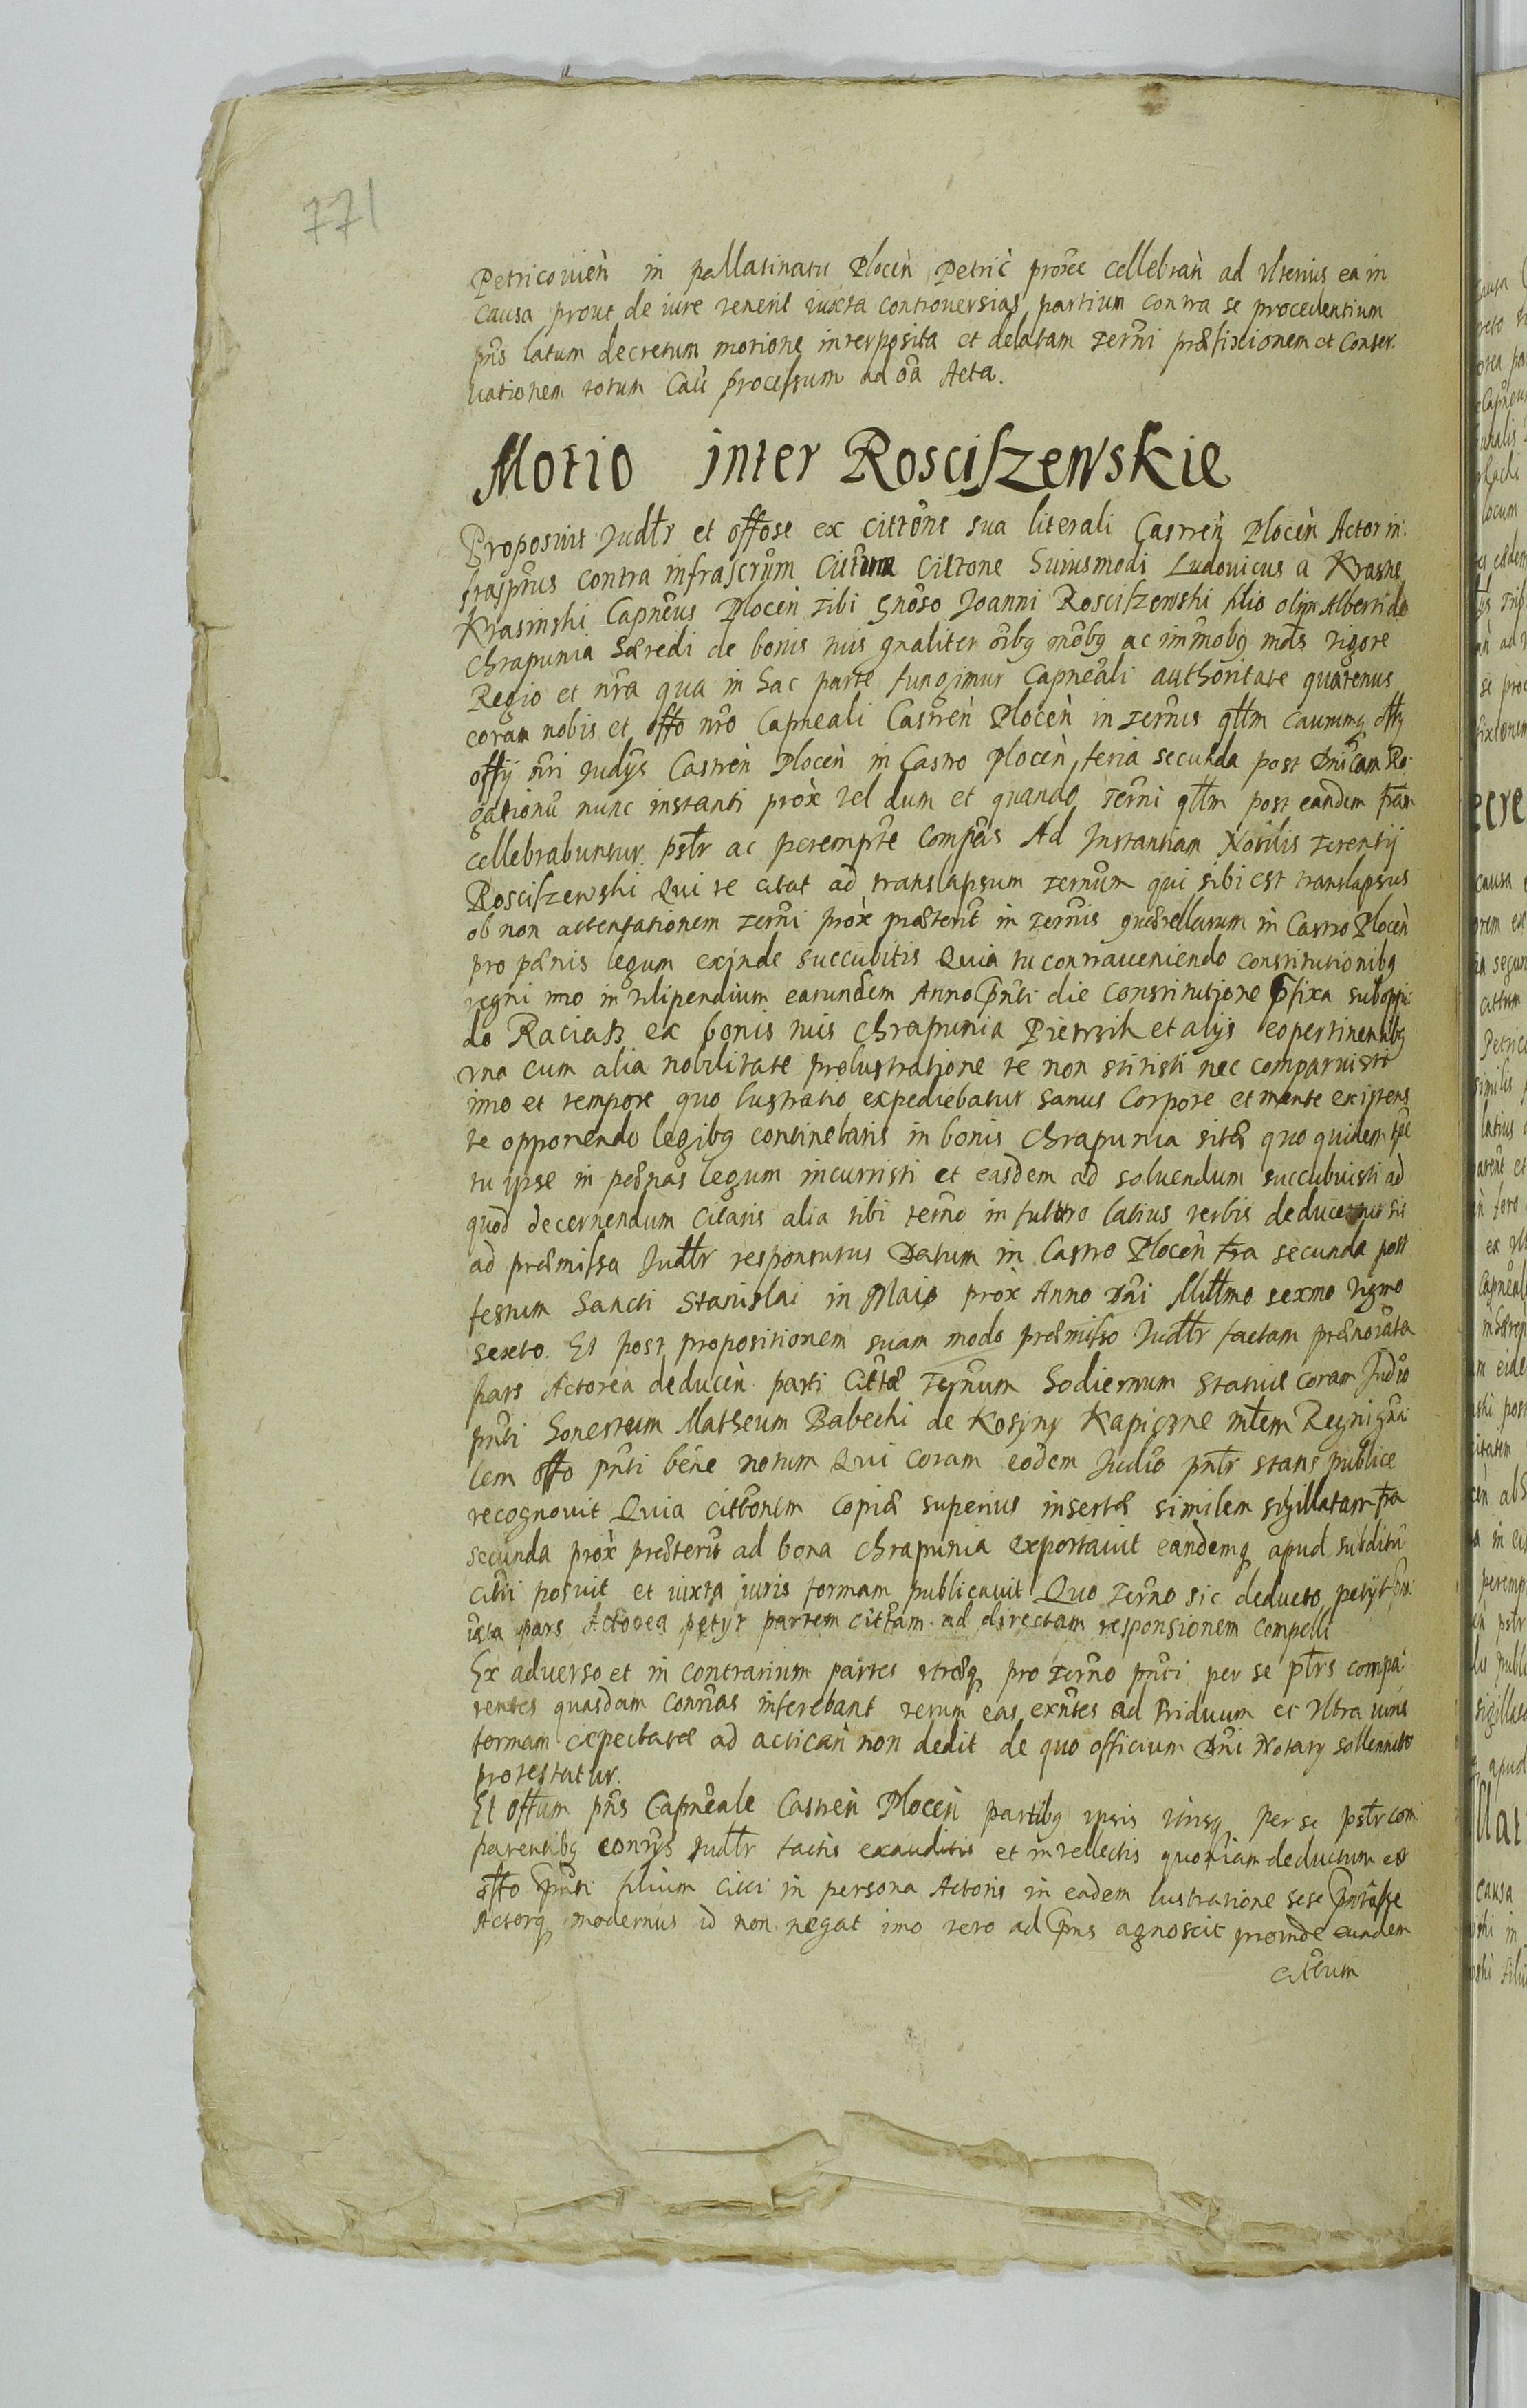 771
Petricouien̄ in pallatinatu Plocen̄ Petric̄ prox̄e cellebran̄ ad vlterius ea in
causa prout de iure venerit iuxta controuersias partium contra se procedentium
pn̄s latum decretum motione interposita et delatam term̄i præfixionem et conser-
uationem totum Cau̅ processum ad oā Acta.
Motio inter Rosciszewskie
Proposuit Judłr et offose ex citt̄one sua literali Castren̄ Plocen̄ Actor in-
frasp̄tus contra infrascrūm citt̄um Cittone huiusmodi Ludouicus a Krasne
Krasinski Capn̄eus Plocen̄ tibi Gn̄oso Joanni Rosciszewski filio olim Alberti de
Chrapunia hæredi de bonis tuis gn̄aliter oībq mōbq ac immobq mdts rigore
Regio et nr̄a qua in hac parte fungimur Capneāli authoritate quatenus
coram nobis et offo nr̄o Capneali Castren̄ Plocen̄ in term̄is qłłm caurumq offq
offij nr̄i Judy̅s Castren̄ Plocen̄ in Castro Plocen̄ feria secunda post Dn̄icam Ro-
gationū nunc instanti prox̄ vel dum et quando term̄i qłłm post eandem fr̄am
cellebrabuntur p̄słr ac perempt̄e compēas Ad Instantiam Nobilis Terentij
Rosciszewski Qui te citat ad translapsum term̄um qui sibi est translapsus
ob non attentationem term̄i prox̄ præterit̄ in term̄is quærellarum in Castro Plocen̄
pro pænis legum exinde succubitis Quia tu contraueniendo constitutionibq
regni imo in vilipendium earundem Anno pn̄ti die constitutione p̄fixa sub oppi-
do Raciasz ex bonis tuis Chrapunia Pietrzik et alijs eo pertinentibq
vna cum alia nobilitate pro lustratione te non stitisti nec comparuisti
imo et tempore quo lustratio expediebatur sanus corpore et mente existens
te opponendo legibq continebaris in bonis Chrapunia sitæ quo quidem tp̄e
tu ipse in pænas legum incurristi et easdem ad soluendum succubuisti ad
quod decernendum citaris alia tibi term̄o in futuro latius verbis deducentur sis
ad præmissa Judłr responsurus Datum in Castro Plocen̄ fr̄a secunda post
festum Sancti Stanislai in Maio prox̄ Anno Dn̄i Milłmo sexmo vigmo
sexto. Et post propositionem suam modo præmisso Judłr factam prænotāta
pars Actorea deducen̄ parti citt̄æ Term̄um hodiernum statuit coram Judio
pn̄ti honestum Matheum Babecki de Kosyny Kapiczne młem Regni gn̄a-
lem offo pn̄ti bene notum Qui coram eodem Judio pn̄łr stans publice
recognouit Quia citt̄onem copiæ superius insertæ similem sigillatam fr̄a
secunda prox̄ præteriī ad bona Chrapunia exportauit eandemq apud subditū
citti posuit et iuxta iuris formam publicauit Quo term̄o sic deducto petijt
ista pars Actorea petyt partem citt̄am ad directam responsionem compelli
Ex aduerso et in contrarium partes vtræq pro term̄o pn̄ti per se p̄łrs compa-
rentes quasdam contr̄as inferebant verum eas exn̄tes ad triduum et vltra iuris
formam expectatæ ad actican̄ non dedit de quo officium Dn̄i Notary sollenniter
protestatur.
Et offum pn̄s Capneāle Castren̄ Plocen̄ partibq ipsis vtrisq per se p̄słr com-
parentibq contr̄ys Judłr factis exauditis et intellectis quoniam deductum est
offo pn̄ti filium citti in persona Actoris in eadem lustratione sese pn̄tasse
Actorq modernus id non negat imo vero ad pn̄s agnoscit proinde eundem
citt̄um